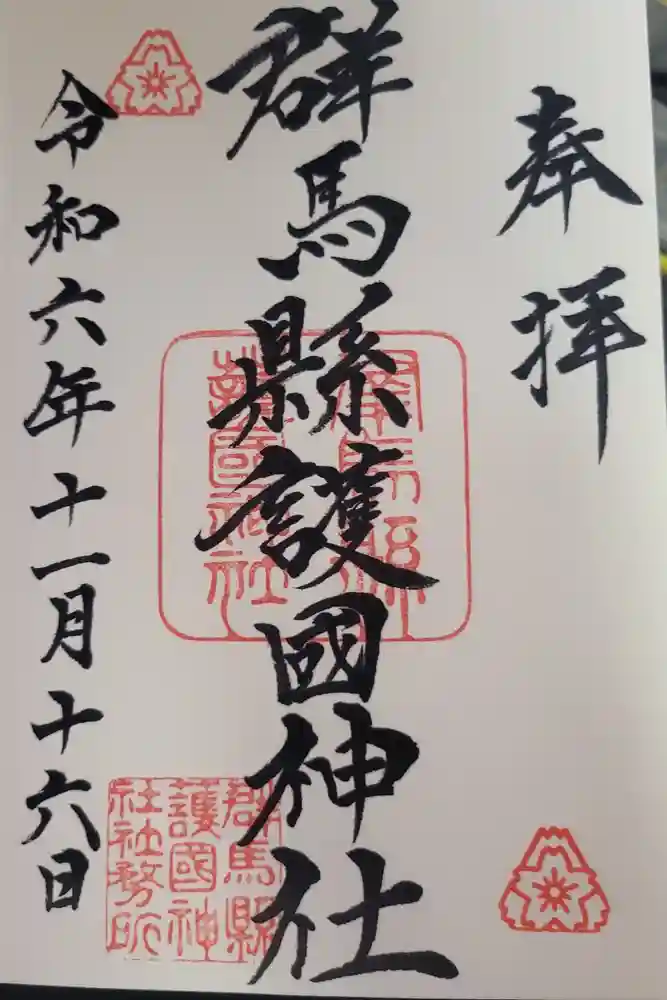 奉拝
群馬縣護國神社
令和六年十一月十六日
群馬縣
護國神社
群馬縣
護國神
社社務所